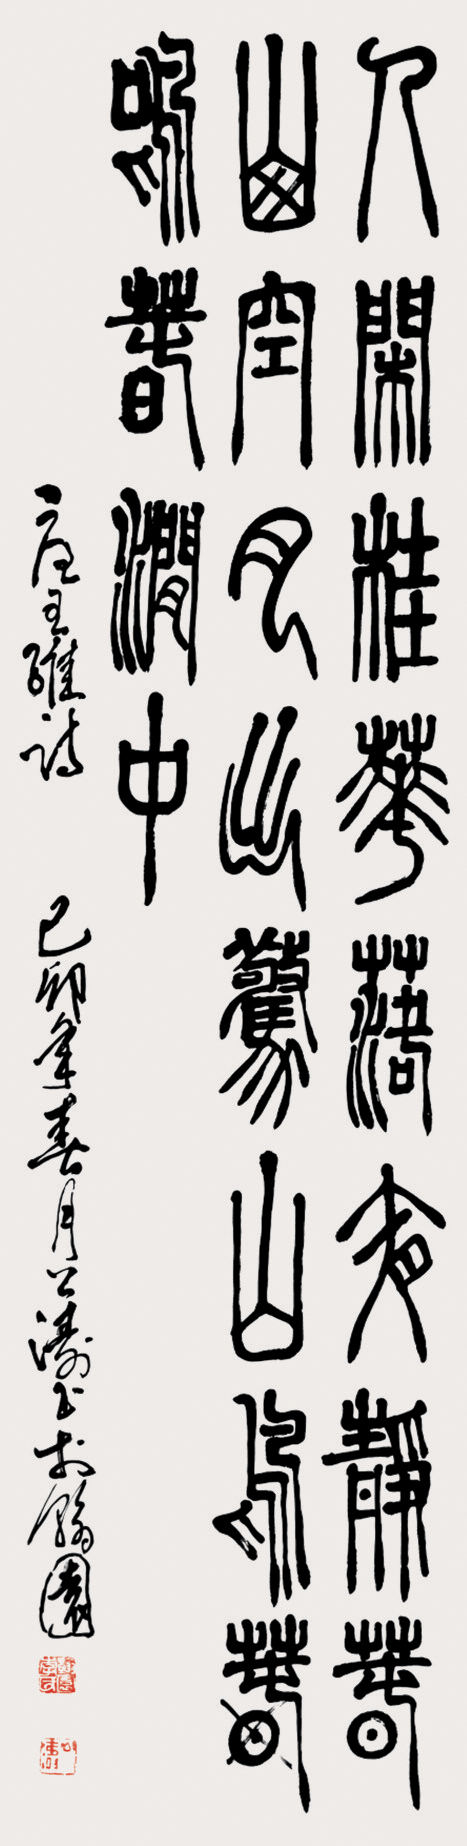 人閑桂華落夜靜春
山空月出驚山鳥春
鳴春澗中
唐王維詩 己卯年春月公濤书於翰園